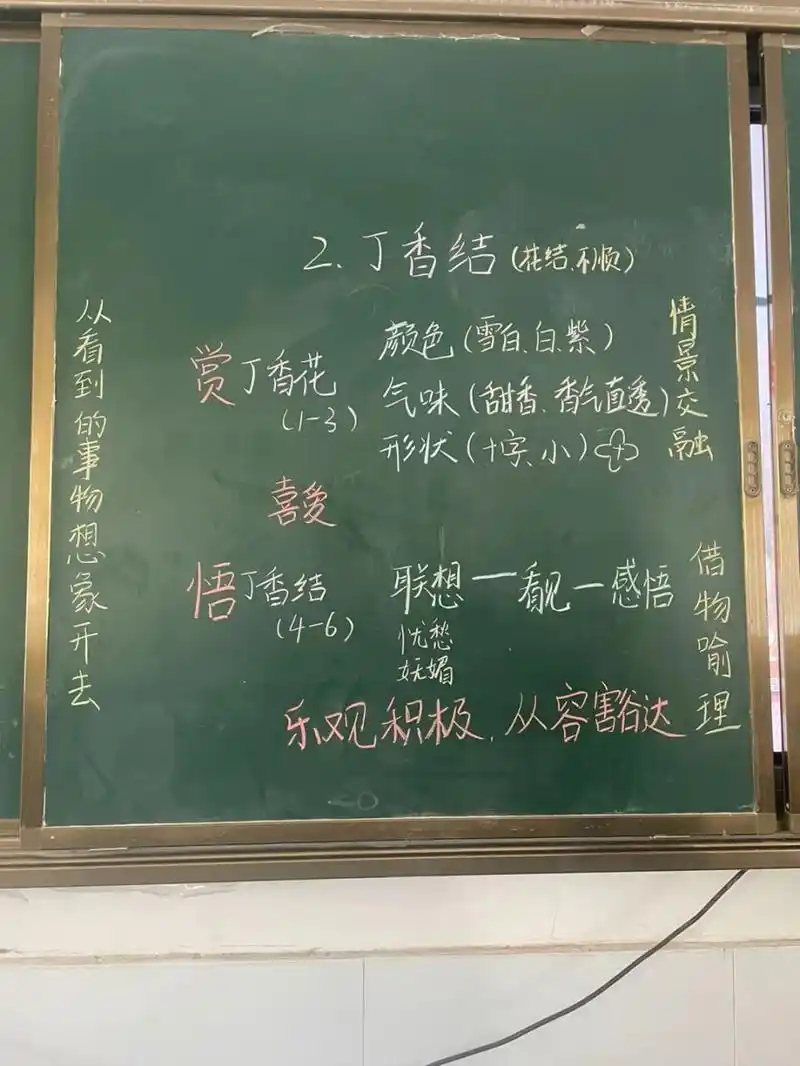 2.丁香结(花结、不顺)
从看到的事物想象开去
赏丁香花
(1-3)
颜色(雪白、白、紫)
气味(甜香、香气直透)
形状(十字、小)
情景交融
喜爱
悟丁香结
(4-6)
联想一看见一感悟
忧愁
妩媚
借物喻理
乐观积极、从容豁达